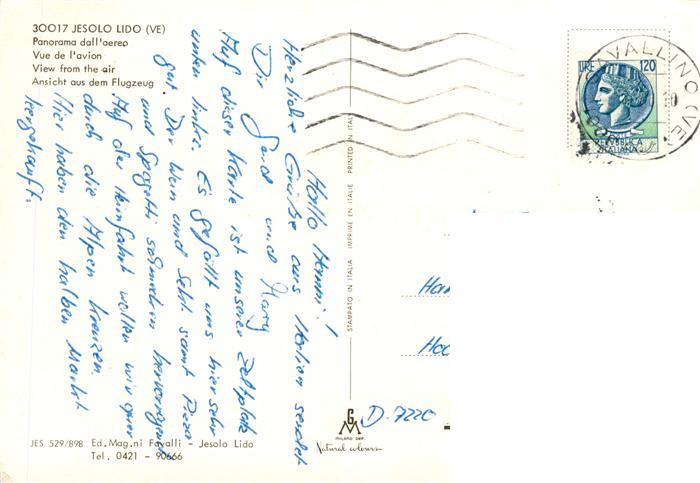 30017 JESOLO LIDO (VE)
Panorama dall'aereo
Vue de l'avion
View from the air
Ansicht aus dem Flugzeug
Hallo Hanni!
Herzliche Grüße aus Italien sendet
Dir Gernd und Mary
Auf dieser Karte ist unserer Zeltplatz
unten links. Es gefällt uns hier sehr
gut. Der Wein und Sekt samt Pizza
und Spagetti schmecken hervorragend
Auf der Heimfahrt wollen wir quer
durch die Alpen kreuzen.
Hier haben den halben Markt
leergekauft.
JES 529/898 Ed. Mag.ni Favalli - Jesolo Lido
Tel. 0421 - 90666
STAMPATO IN ITALIA IMPRIMÉ EN ITALIE PRINTED IN ITALY
GM
MILANO DEP.
Natural colours
LIRE 120
REPVBBLICA
ITALIANA
CAVALLINO (VE)
Han
Hoc
D-7220